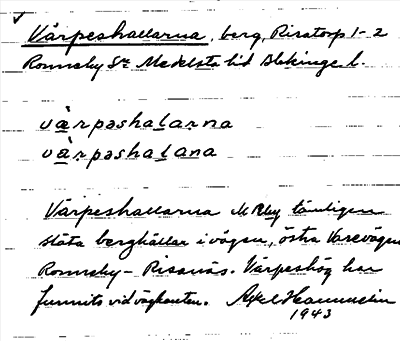 Värpeshallarna, berg, Risatorp 1-2
Ronneby Sn Medelsta hd Blekinge l.
vàrpəshalarna
vàrpəshalana
Värpeshallarna tämligen
släta berghällar i vägen, östra Varevägen
Ronneby - Risanäs. Värpeshög har
funnits vid vägkanten. Axel
1943